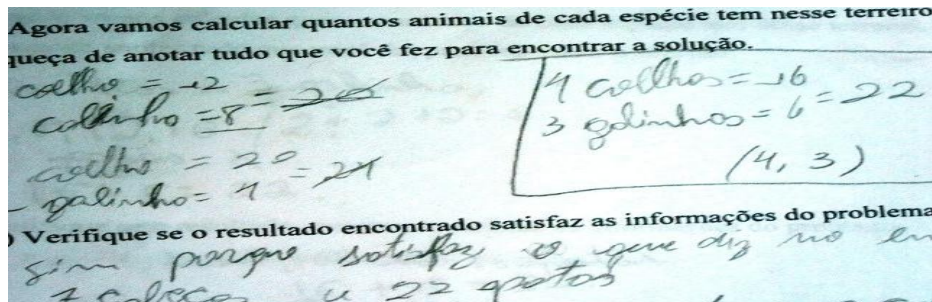 Agora vamos calcular quantos animais de cada espécie tem nesse terreiro
queça de anotar tudo que você fez para encontrar a solução.
coelho = 12
= 20
=8
coelho = 20
= 24
galinha = 4
4 coelhos = 16
= 22
3 galinhas = 6
(4, 3)
) Verifique se o resultado encontrado satisfaz as informações do problema
Sim porque satisfaz o que diz no en
7 cabeças e 22 patas